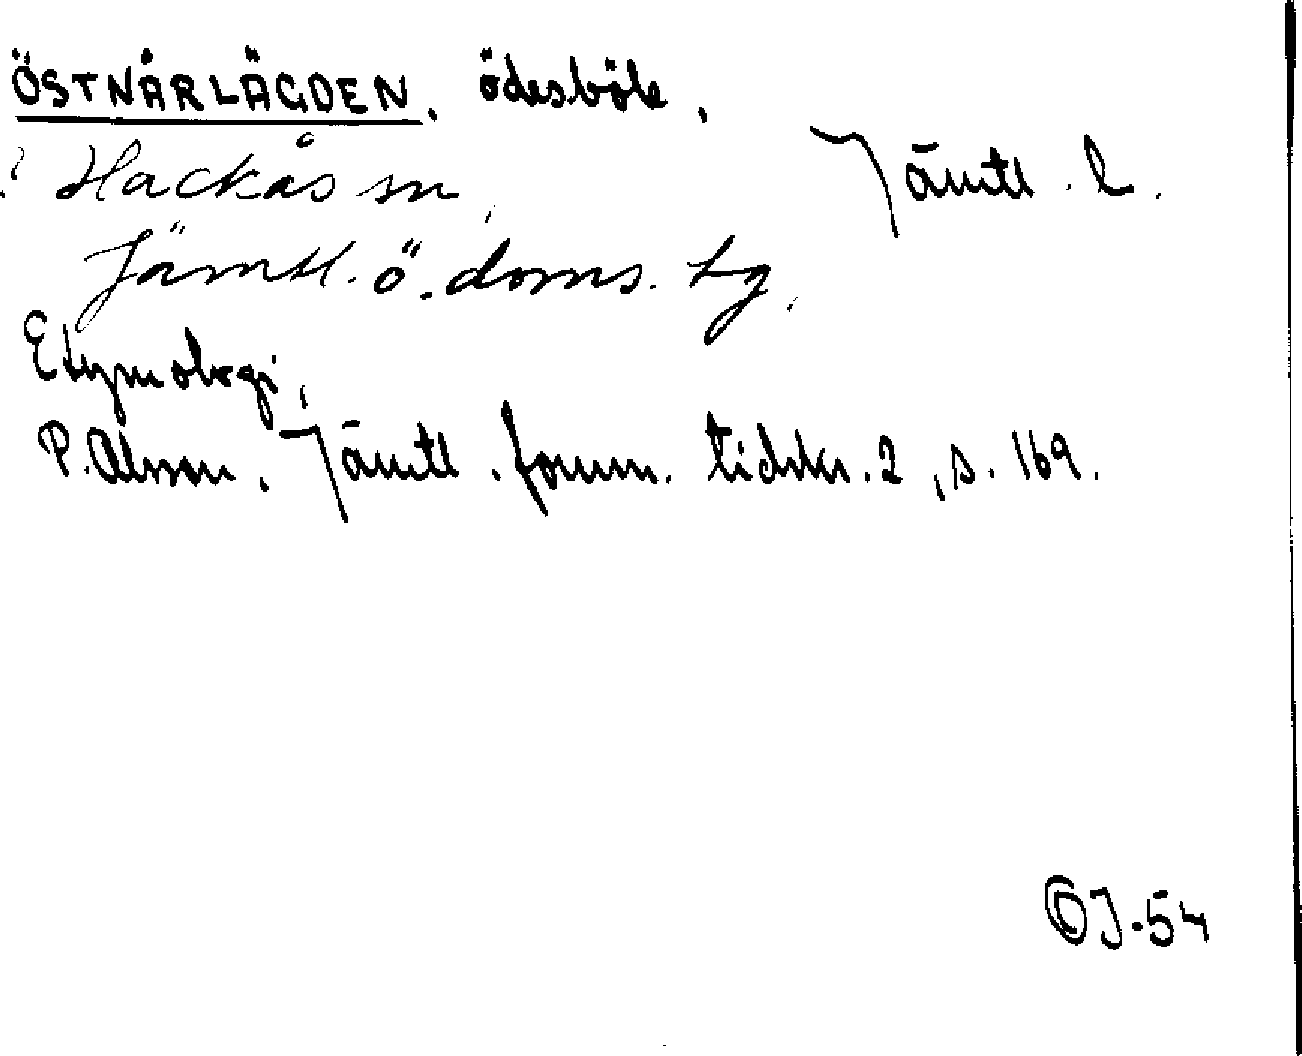 ÖSTNÅRLÄGDEN. ödesböle.
? Hackås sn,
Jämtl. l.
Jämtl. ö. doms. tg.
Etymologi,
P. Olsson. Jämtl. fornm. tidskr. 2, s. 169.
J-54